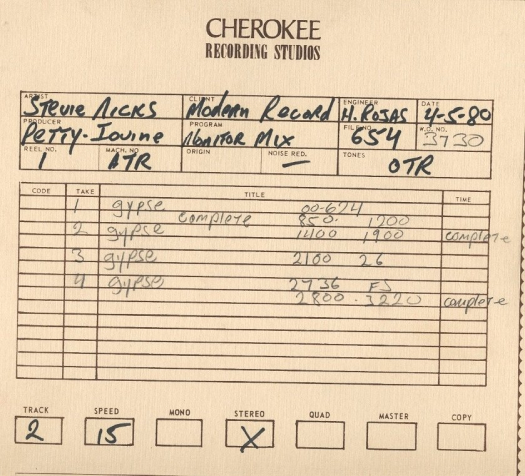 CHEROKEE
RECORDING STUDIOS
ARTIST Stevie Nicks CLIENT Modern Record ENGINEER H. Rojas DATE 4-5-80
PRODUCER Petty-Iovine PROGRAM Monitor Mix FILE NO. 654 W.O. NO. 3730
REEL NO. 1 MACH. NO. ATR ORIGIN NOISE RED. — TONES OTR
CODE TAKE TITLE TIME
1 gypse 00-674
complete 850- 1200
2 gypse 1400 1900 complete
3 gypse 2100 26
4 gypse 2736 FS
2800-3220 complete
TRACK SPEED MONO STEREO QUAD MASTER COPY
2 15 X